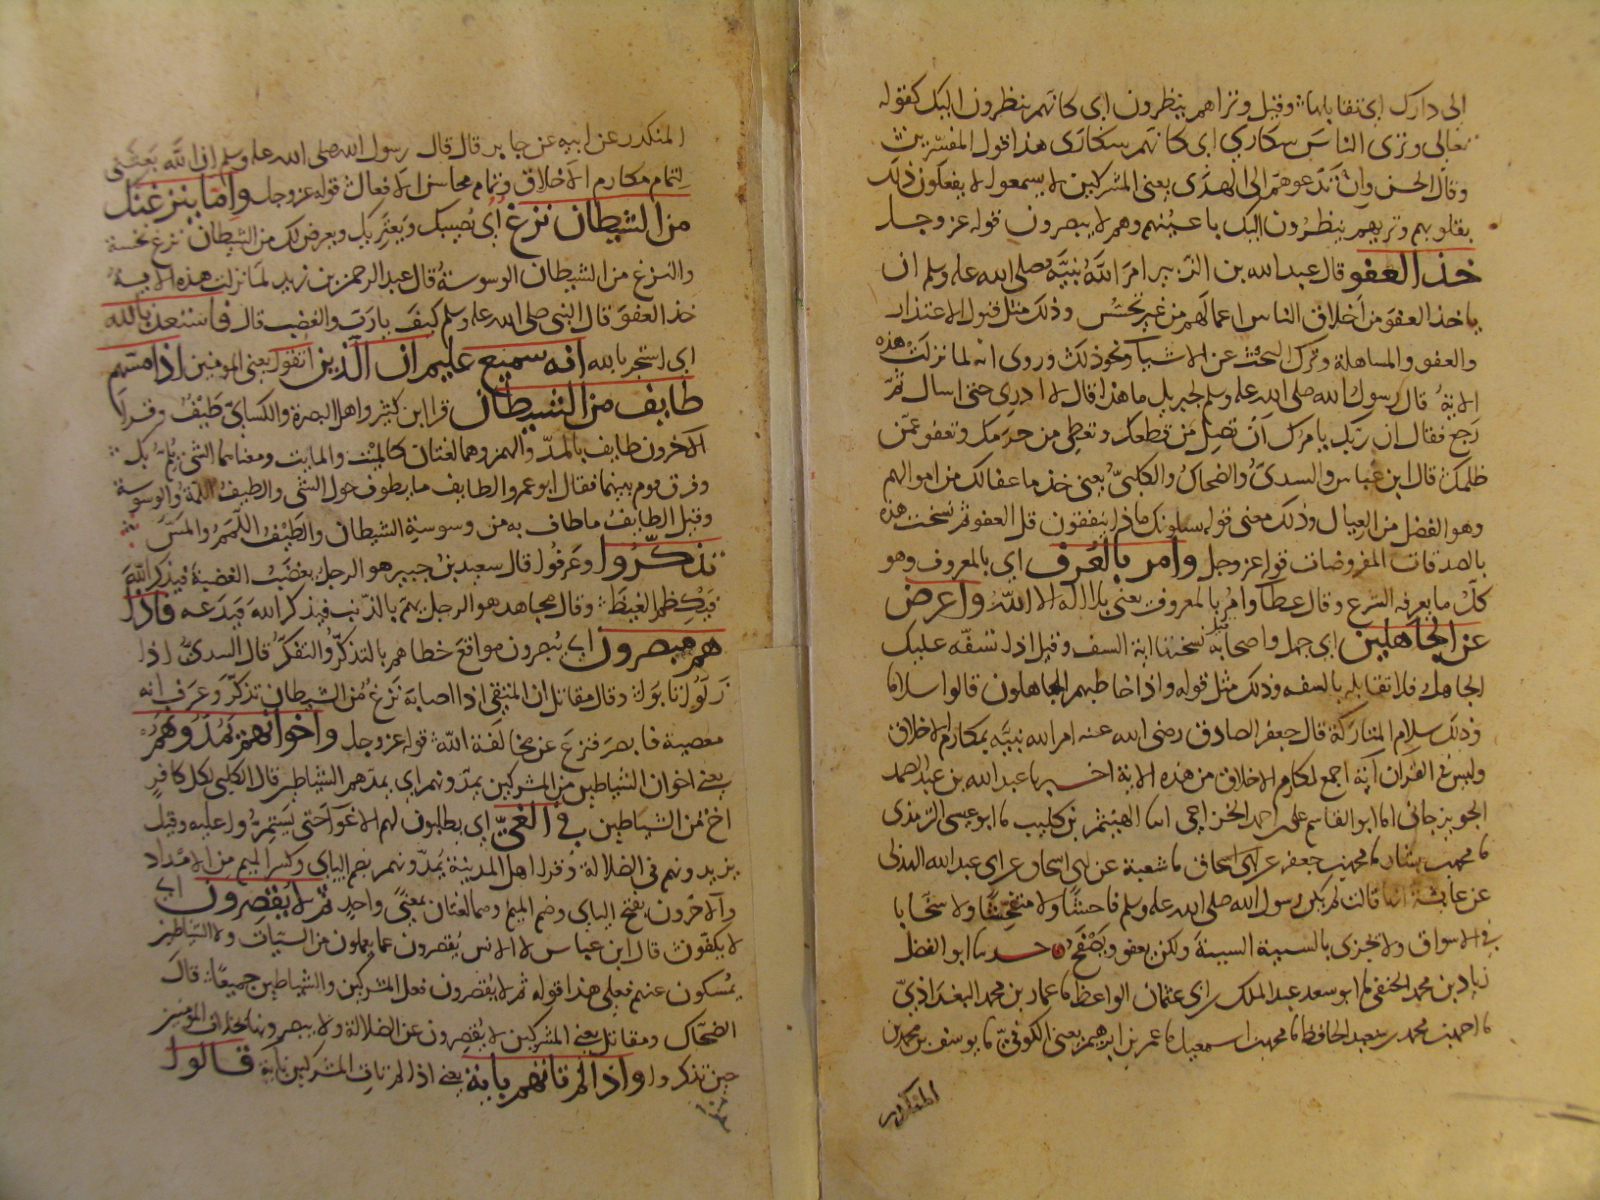 الى دارك اي تقابلها وقيل وتراهم ينظرون اي كانهم ينظرون اليك كقوله
تعالى وترى الناس سكارى اي كانهم سكارى هذا قول المفسرين
وقال الحسن وان تدعوهم الى الهدى يعني المشركين لا يسمعوا لا يفعلون ذلك
بقلوبهم وتريهم ينظرون اليك باعينهم وهم لا يبصرون قوله عز وجل
خذ العفو قال عبد الله بن الزبير امر الله نبيه صلى الله عليه وسلم ان
ياخذ العفو من اخلاق الناس اعمالهم من غير تجسس وذلك مثل قبول الاعتذار
والعفو والمساهلة وترك البحث عن الاشيا ونحو ذلك وروى انه لما نزلت هذه
الاية قال رسول الله صلى الله عليه وسلم لجبريل ما هذا قال لا ادري حتى اسال ثم
رجع فقال ان ربك يامرك ان تصل من قطعك وتعطي من حرمك وتعفو عمن
ظلمك قال ابن عباس والسدي والضحاك والكلبي يعني خذ ما عفا لك من اموالهم
وهو الفضل من العيال وذلك معنى قوله يسلونك ماذا ينفقون قل العفو ثم نسخت هذه
بالصدقات المفروضات قوله عز وجل وامر بالعرف اي بالمعروف وهو
كل ما يعرفه الشرع وقال عطا وامر بالمعروف يعني بلا اله الا الله واعرض
عن الجاهلين ابي جهل واصحابه نسختها اية السيف وقيل اذا تسفه عليك
الجاهل فلا تقابله بالسفه وذلك مثل قوله واذا خاطبهم الجاهلون قالوا سلاما
وذلك سلام المتاركة قال جعفر الصادق رضي الله عنه امر الله نبيه بمكارم الاخلاق
وليس في القران اية اجمع لمكارم الاخلاق من هذه الاية اخبرنا عبد الله بن عبد الصمد
الجوزجاني انا ابو القاسم علي بن احمد الخزاعي انا الهيثم بن كليب نا ابو عيسى الترمذي
نا محمد بن بشار نا محمد بن جعفر نا شعبة عن ابي اسحاق عن ابي عبد الله
عن عايشة انها قالت لم يكن رسول الله صلى الله عليه وسلم فاحشا ولا متفحشا ولا سخابا
في الاسواق ولا يجزى بالسيية السيية ولكن يعفو ويصفح حدثنا ابو الفضل
زياد بن محمد الحنفي نا ابو سعد عبد الملك بن ابي عثمان الواعظ نا عمار بن محمد البغدادي
نا احمد بن محمد بن سعيد الحافظ نا محمد بن اسمعيل نا عمر بن ابرهيم يعني الكوفي نا يوسف بن محمد بن
المنكدر
المنكدر عن ابيه عن جابر قال قال رسول الله صلى الله عليه وسلم ان الله بعثني
لتمام مكارم الاخلاق وتمام محاسن الافعال قوله عز وجل واما ينزغنك
من الشيطان نزغ اي يصيبك ويعتريك ويعرض لك من الشيطان نزغ نخسة
والنزغ من الشيطان الوسوسة قال عبد الرحمن بن زيد لما نزلت هذه الاية
خذ العفو قال النبي صلى الله عليه وسلم كيف يا رب والغضب قال فاستعذ بالله
اي استجر بالله انه سميع عليم ان الذين اتقوا يعني المومنين اذا مسهم
طايف من الشيطان قرا ابن كثير واهل البصرة والكساي طيف وقرا
الاخرون طايف بالمد والهمز وهما لغتان كالميت والمايت ومعناهما الشي يلم بك
وفرق قوم بينهما فقال ابو عمرو الطايف ما يطوف حول الشي والطيف اللمة والوسوسة
وقيل الطايف ما طاف به من وسوسة الشيطان والطيف اللمم والمس
تذكروا وعرفوا قال سعيد بن جبير هو الرجل يغضب الغضبة فيذكر الله
فيكظم الغيظ وقال مجاهد هو الرجل يهم بالذنب فيذكر الله فيدعه فاذا
هم مبصرون اي يبصرون مواقع خطاهم بالتذكر والتفكر قال السدي اذا
زلوا تابوا وقال مقاتل ان المتقي اذا اصابه نزغ من الشيطان تذكر وعرف انه
معصية فابصر فنزع عن مخالفة الله قوله عز وجل واخوانهم يمدونهم
يعني اخوان الشياطين من المشركين يمدونهم اي يمدهم الشياطين قال الكلبي لكل كافر
اخ من الشياطين في الغي اي يطلبون لهم الاغوا حتى يستمروا عليه وقيل
يزيدونهم في الضلالة وقرا اهل المدينة يمدونهم بضم الياي وكسر الميم من الامداد
والاخرون بفتح الياي وضم الميم وهما لغتان بمعنى واحد ثم لا يقصرون اي
لا يكفون قال ابن عباس لا الانس يقصرون عما يعملون من السيات ولا الشياطين
يمسكون عنهم فعلى هذا قوله ثم لا يقصرون فعل المشركين والشياطين جميعا قال
الضحاك ومقاتل يعني المشركين لا يقصرون عن الضلالة ولا يبصرونها بخلاف المومنين
حين تذكروا واذا لم تاتهم باية يعني اذا لم تات المشركين باية قالوا